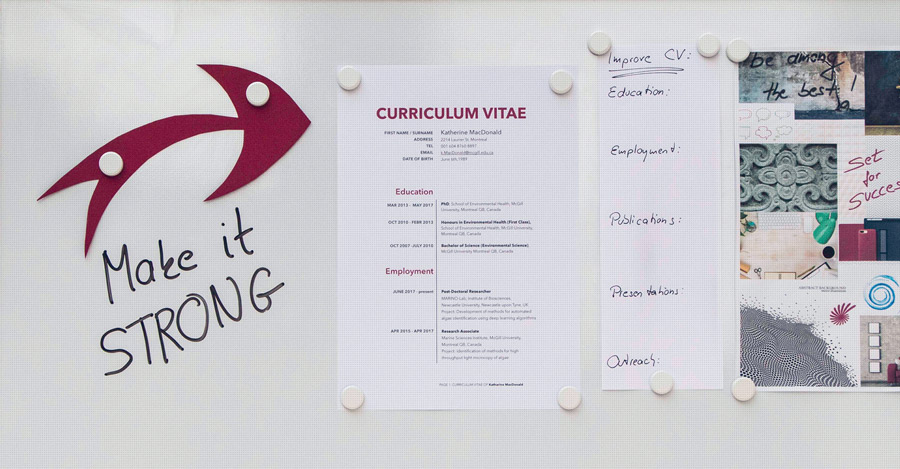 Make it
STRONG
CURRICULUM VITAE
FIRST NAME / SURNAME Katherine MacDonald
ADDRESS 2214 Laurier St. Montreal
TEL
EMAIL k.MacDonald@mcgill.edu.ca
DATE OF BIRTH June 6th, 1989
Education
MAR 2013 - MAY 2017 PhD, School of Environmental Health, McGill
University, Montreal QB, Canada
OCT 2010 - FEBR 2013 Honours in Environmental Health (First Class),
School of Environmental Health, McGill University,
Montreal QB, Canada
OCT 2007 -JULY 2010 Bachelor of Science (Environmental Science)
McGill University, Montreal QB, Canada
Employment
JUNE 2017 - present Post-Doctoral Researcher
MARINO Lab, Institute of Biosciences,
Newcastle University, Newcastle upon Tyne, UK
Project: Development of methods for automated
algae identification using deep learning algorithms
APR 2015 - APR 2017 Research Associate
Marine Sciences Institute, McGill University,
Montreal QB, Canada
Project: Identification of methods for high
throughput light microscopy of algae
PAGE 1 CURRICULUM VITAE OF Katherine MacDonald
Improve CV:
Education:
Employment:
Publications:
Presentations:
Outreach:
be among
the best!
Set
for
Success